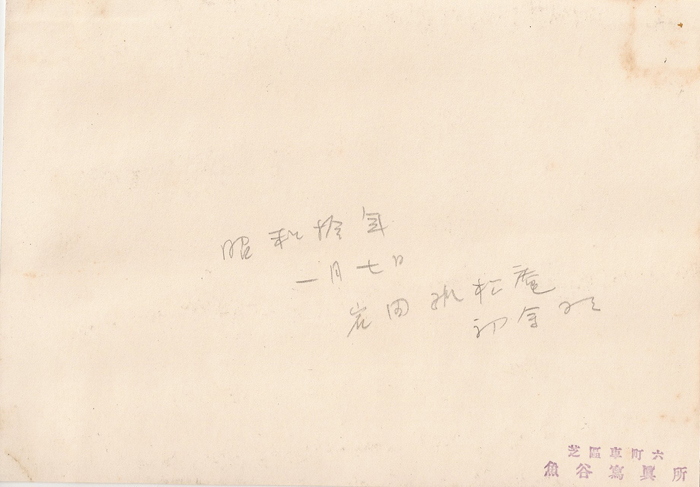 昭和拾年
一月七日
岩田 松庵
芝區車町六
魚谷寫眞所